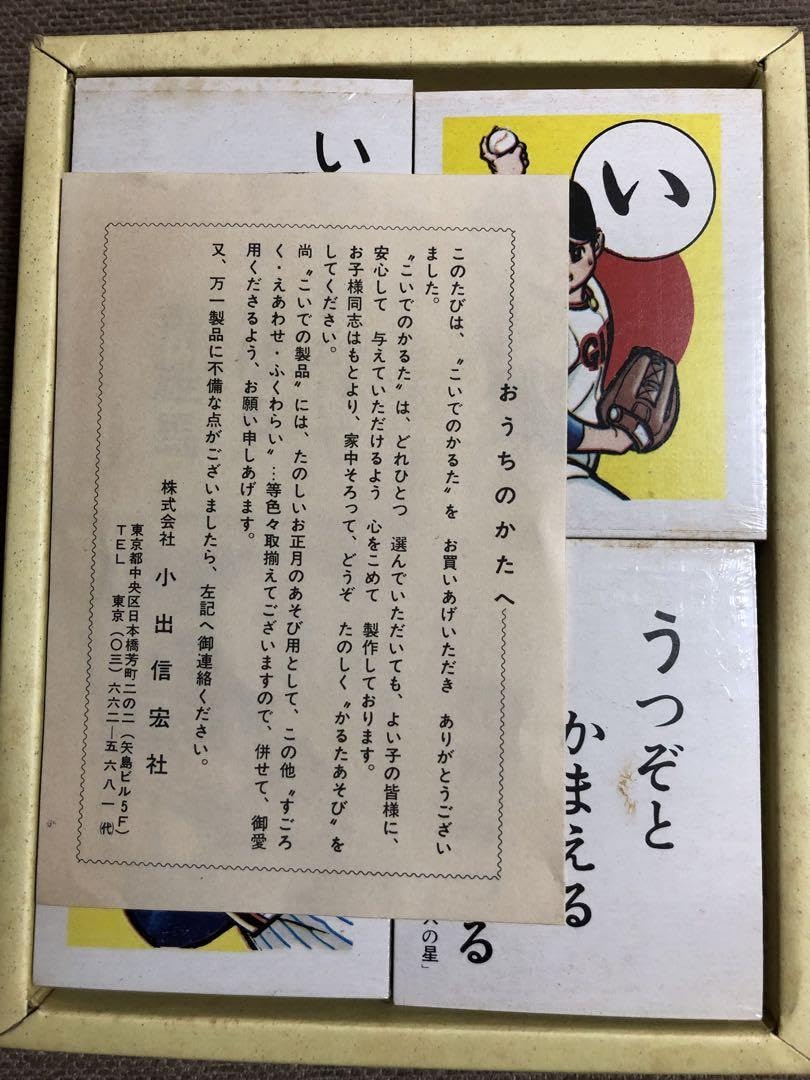 おうちのかたへ
このたびは、“こいでのかるた”を　お買いあげいただき　ありがとうござい
ました。
“こいでのかるた”は、どれひとつ　選んでいただいても、よい子の皆様に、
安心して　与えていただけるよう　心をこめて　製作しております。
お子様同志はもとより、家中そろって、どうぞ　たのしく“かるたあそび”を
してください。
尚“こいでの製品”には、たのしいお正月のあそび用として、この他“すごろ
く・えあわせ・ふくわらい”…等色々取揃えてございますので、併せて、御愛
用くださるよう、お願い申しあげます。
又、万一製品に不備な点がございましたら、左記へ御連絡ください。
株式会社　小出信宏社
東京都中央区日本橋芳町二の二（矢島ビル5F）
TEL　東京（〇三）六六二―五六八一㈹
い
い
G
うつぞと
かまえる
る
の星」